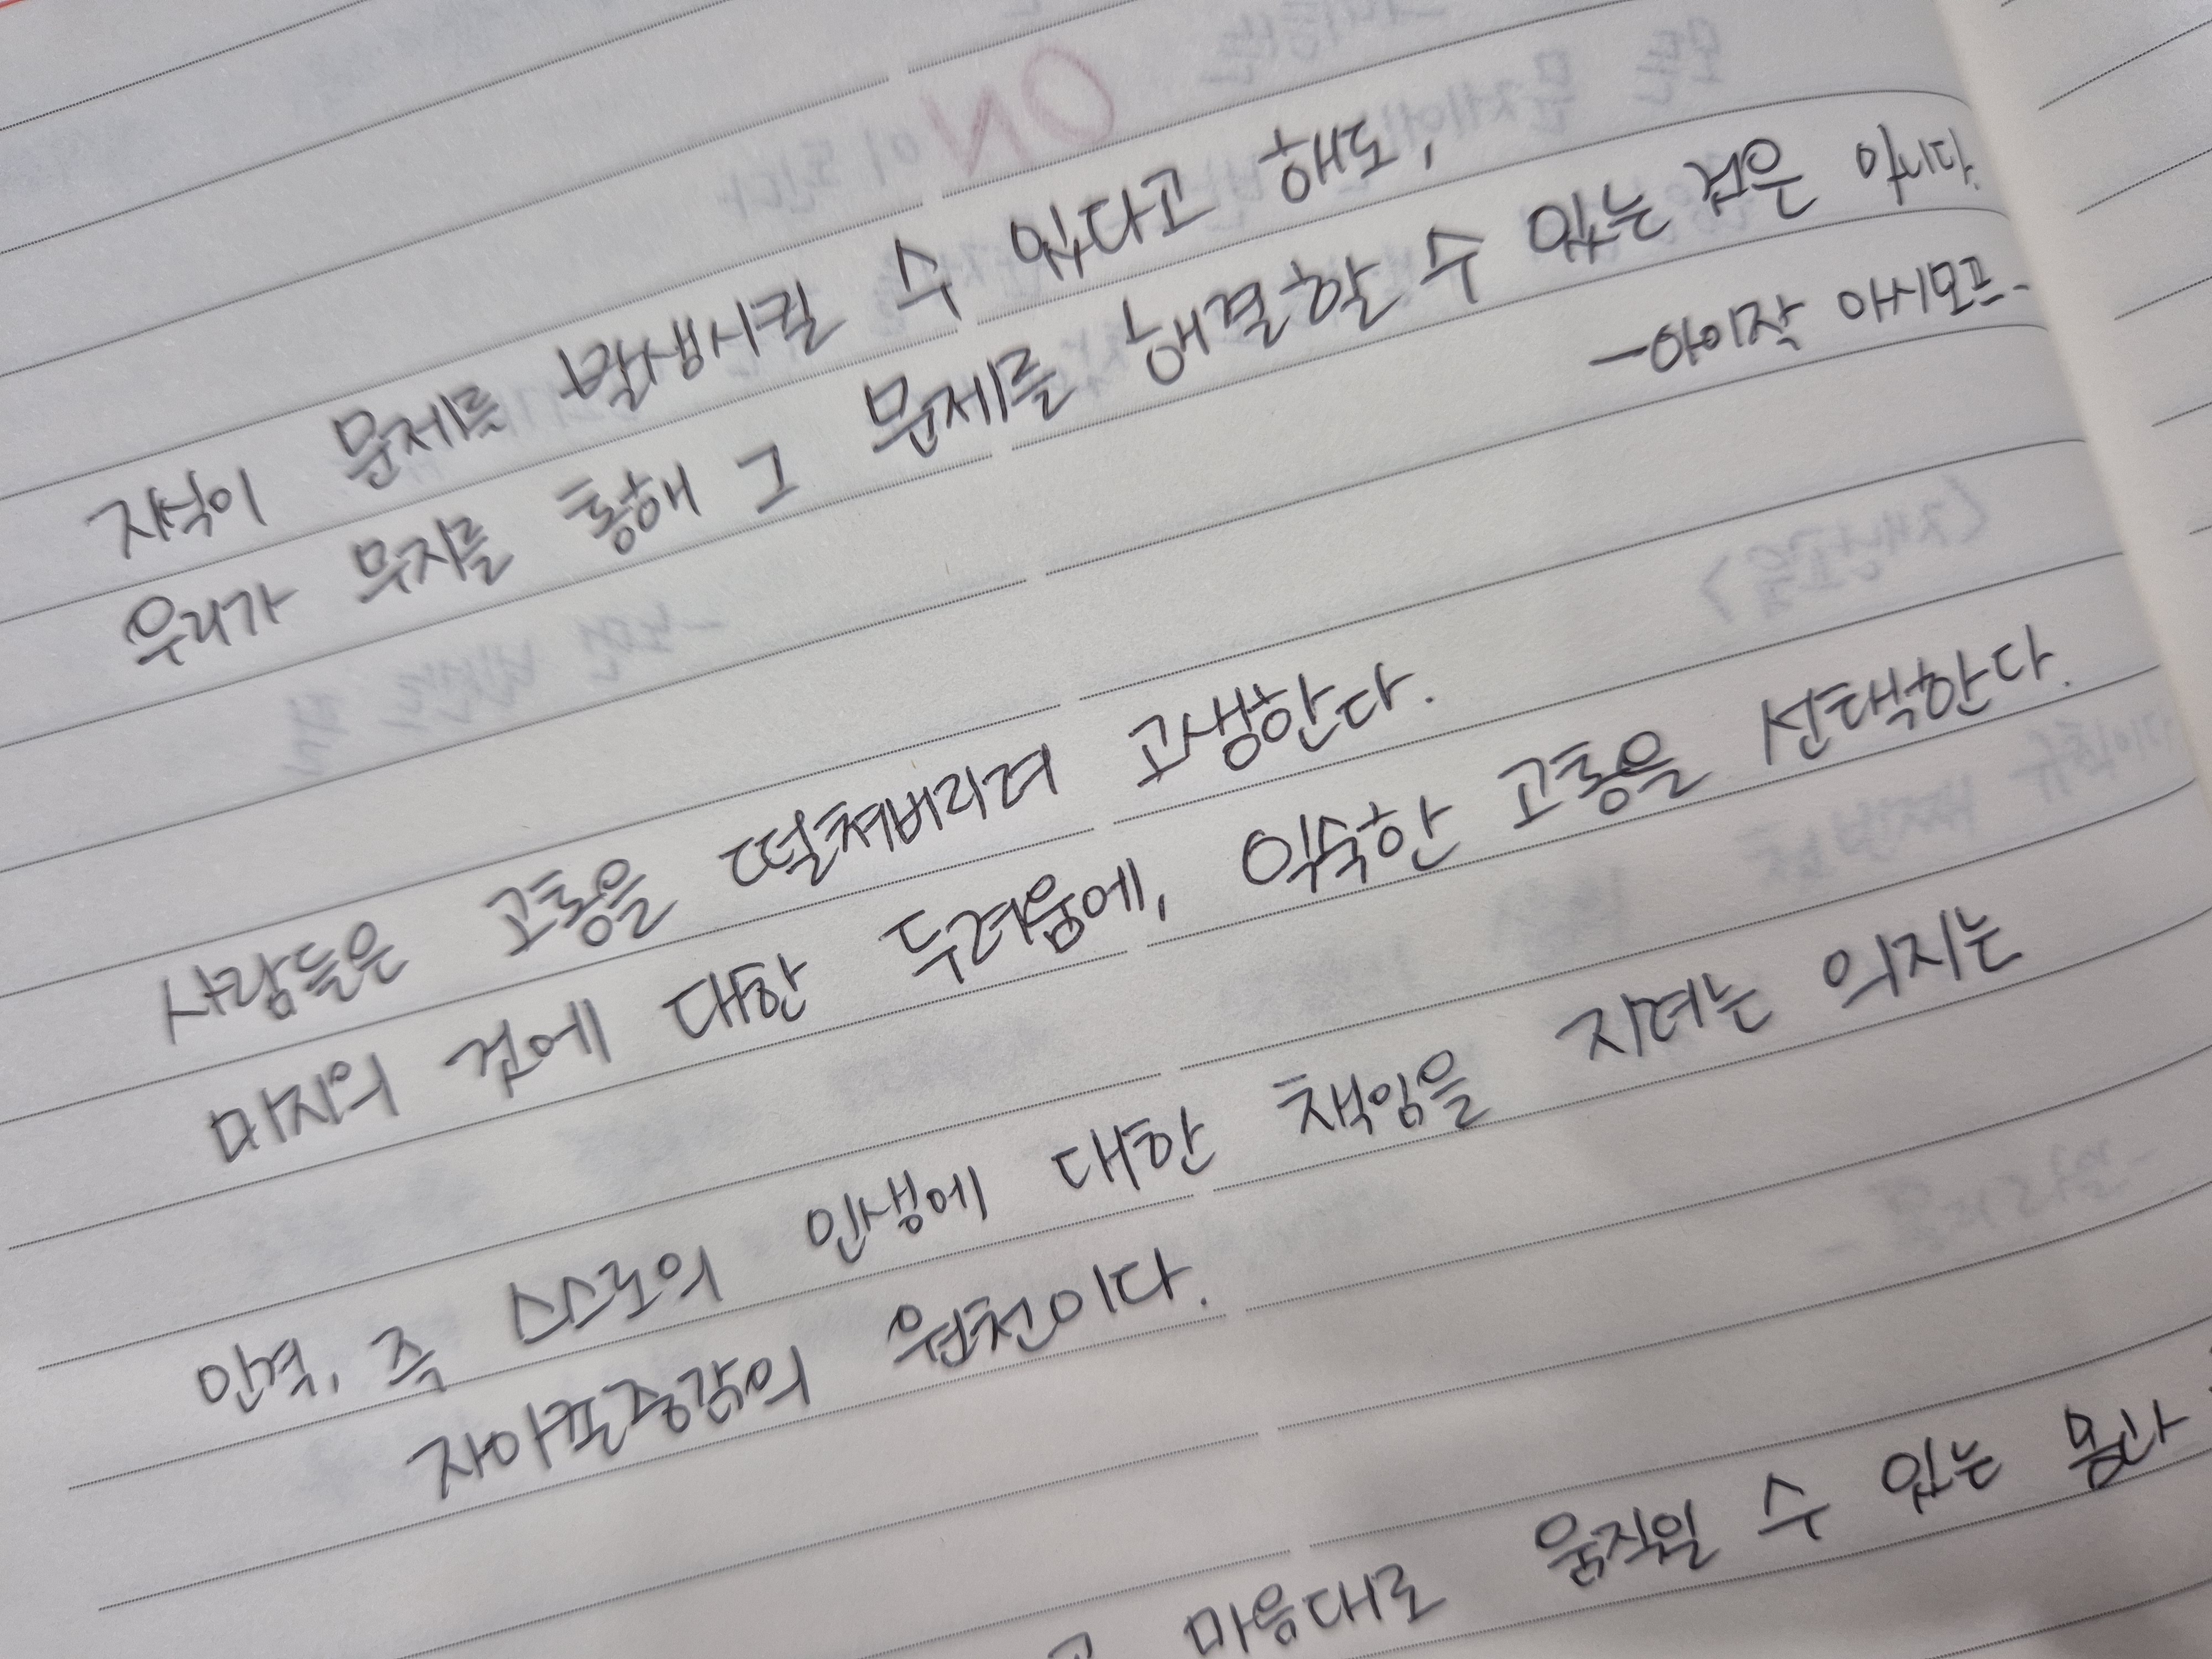 지식이 문제를 발생시킬 수 있다고 해도,
우리가 무지를 통해 그 문제를 해결할 수 있는 것은 아니다.
-아이작 아시모프-
사람들은 고통을 떨쳐버리려 고생한다.
미지의 것에 대한 두려움에, 익숙한 고통을 선택한다.
인격, 즉 스스로의 인생에 대한 책임을 지려는 의지는
자아존중감의 원천이다.
고 마음대로 움직일 수 있는 몸과